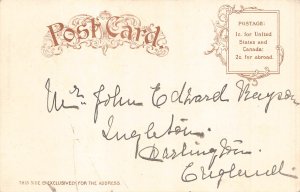 Post Card.
POSTAGE:
1c. for United
States and
Canada:
2c. for abroad.
Mr. John Edward
Ingleton.
Darlington.
England.
THIS SIDE IS EXCLUSIVELY FOR THE ADDRESS